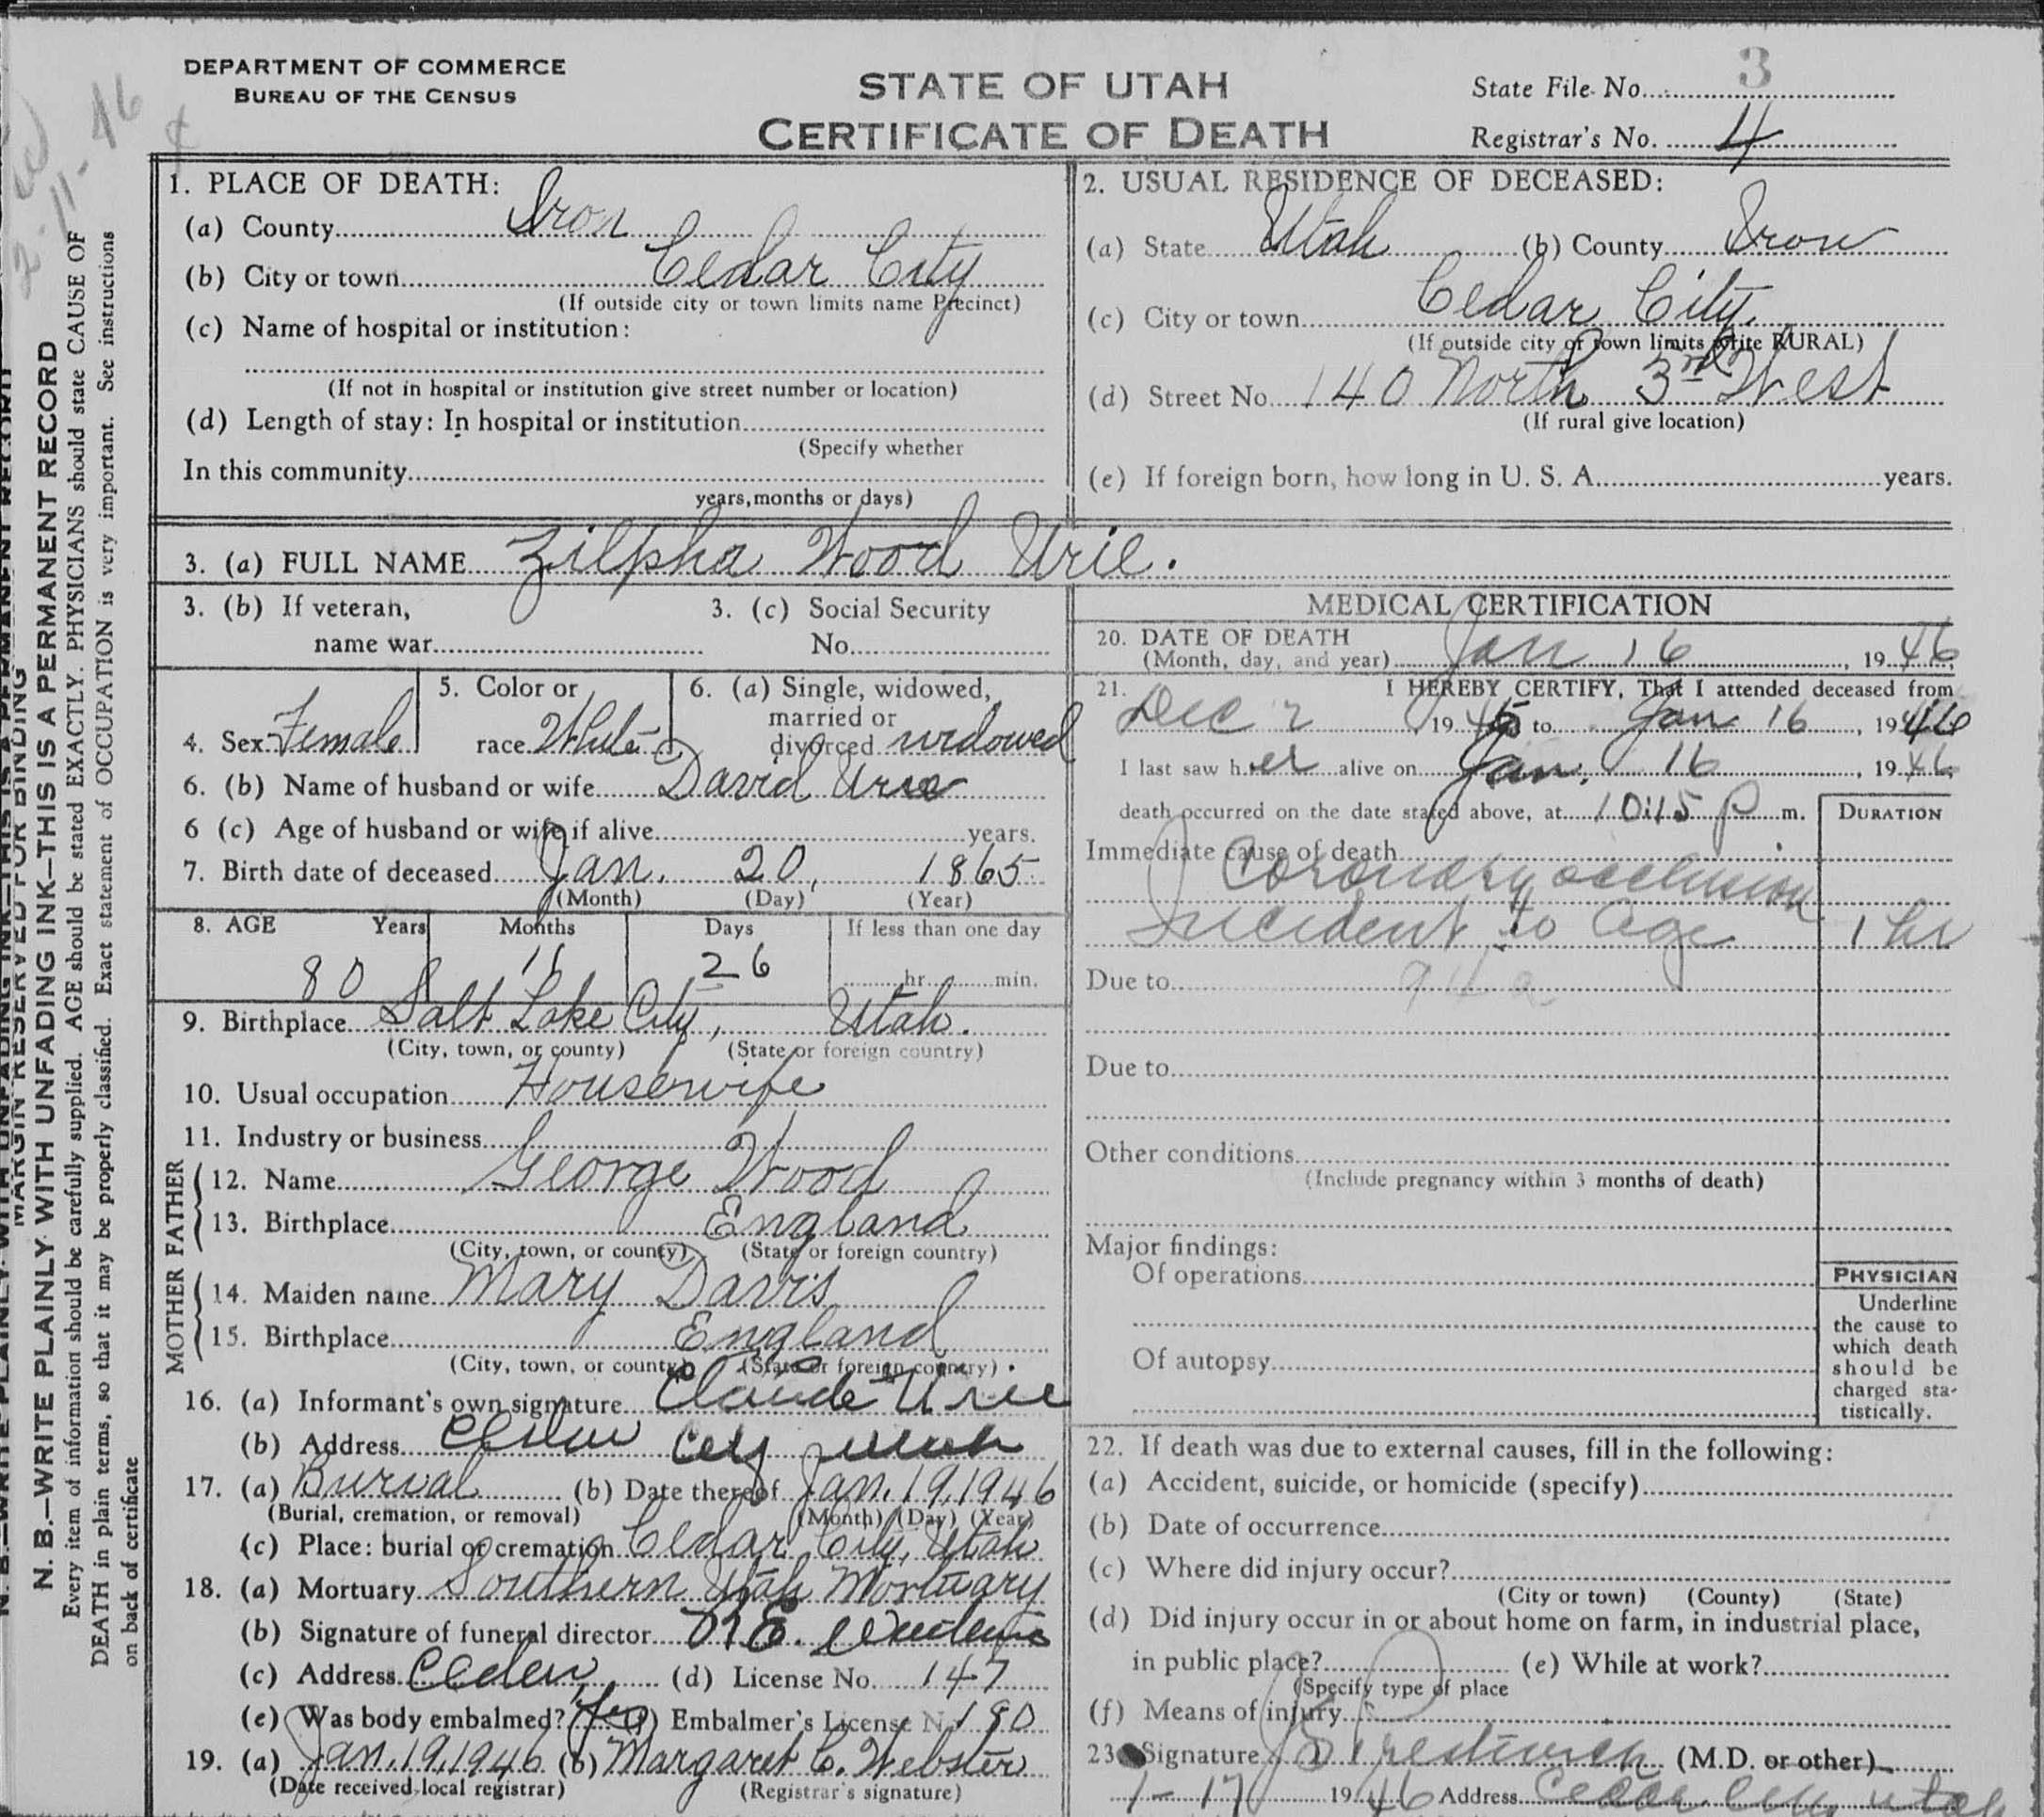 DEPARTMENT OF COMMERCE
BUREAU OF THE CENSUS
STATE OF UTAH
CERTIFICATE OF DEATH
State File No. 3
Registrar's No. 4
2-11-46
MARGIN RESERVED FOR BINDING
N. B.—WRITE PLAINLY WITH UNFADING INK—THIS IS A PERMANENT RECORD
Every item of information should be carefully supplied. AGE should be stated EXACTLY. PHYSICIANS should state CAUSE OF
DEATH in plain terms, so that it may be properly classified. Exact statement of OCCUPATION is very important. See instructions
on back of certificate
1. PLACE OF DEATH:
(a) County Iron
(b) City or town Cedar City
(If outside city or town limits name Precinct)
(c) Name of hospital or institution:
(If not in hospital or institution give street number or location)
(d) Length of stay: In hospital or institution
(Specify whether
In this community
years, months or days)
2. USUAL RESIDENCE OF DECEASED:
(a) State Utah (b) County Iron
(c) City or town Cedar City
(If outside city or town limits write RURAL)
(d) Street No. 140 North 3rd West
(If rural give location)
(e) If foreign born, how long in U. S. A. years.
3. (a) FULL NAME Zilpha Wood Urie.
3. (b) If veteran,
name war
3. (c) Social Security
No.
4. Sex Female
5. Color or
race White
6. (a) Single, widowed,
married or
divorced widowed
6. (b) Name of husband or wife David Urie
6 (c) Age of husband or wife if alive years.
7. Birth date of deceased Jan. 20, 1865
(Month) (Day) (Year)
8. AGE Years Months Days If less than one day
80 11 26 hr. min.
9. Birthplace Salt Lake City, Utah.
(City, town, or county) (State or foreign country)
10. Usual occupation Housewife
11. Industry or business
FATHER
12. Name George Wood
13. Birthplace England
(City, town, or county) (State or foreign country)
MOTHER
14. Maiden name Mary Davis
15. Birthplace England
(City, town, or county) (State or foreign country)
16. (a) Informant's own signature Claude Urie
(b) Address Cedar City Utah
17. (a) Burial (b) Date thereof Jan. 19, 1946
(Burial, cremation, or removal) (Month) (Day) (Year)
(c) Place: burial or cremation Cedar City, Utah
18. (a) Mortuary Southern Utah Mortuary
(b) Signature of funeral director
(c) Address Cedar (d) License No. 147
(e) Was body embalmed? Yes (f) Embalmer's License No. 190
19. (a) Jan. 19, 1946 (b) Margaret C. Webster
(Date received local registrar) (Registrar's signature)
MEDICAL CERTIFICATION
20. DATE OF DEATH
(Month, day, and year) Jan 16, 1946
21. I HEREBY CERTIFY, That I attended deceased from
Dec 2, 1945 to Jan 16, 1946
I last saw her alive on Jan. 16, 1946
death occurred on the date stated above, at 10:15 P m.
DURATION
Immediate cause of death
Coronary occlusion
Incident to age 1 hr
Due to 94a
Due to
Other conditions
(Include pregnancy within 3 months of death)
Major findings:
Of operations
Of autopsy
PHYSICIAN
Underline
the cause to
which death
should be
charged sta-
tistically.
22. If death was due to external causes, fill in the following:
(a) Accident, suicide, or homicide (specify)
(b) Date of occurrence
(c) Where did injury occur?
(City or town) (County) (State)
(d) Did injury occur in or about home on farm, in industrial place,
in public place? (e) While at work?
(Specify type of place
(f) Means of injury
23. Signature (M.D. or other)
1-17 1946 Address Cedar City Utah